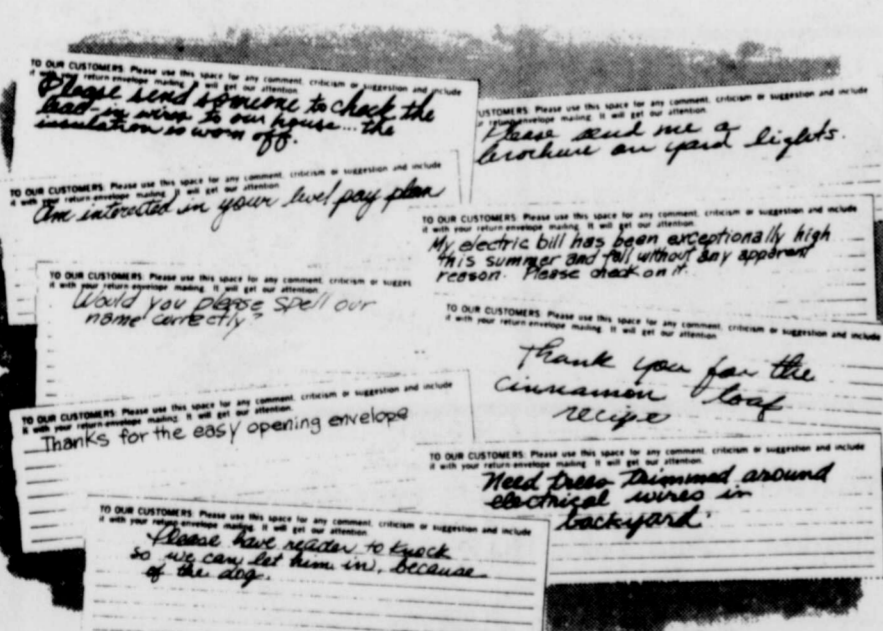 TO OUR CUSTOMERS: Please use this space for any comment, criticism or suggestion and include
it with your return envelope mailing. It will get our attention.
Please send someone to check the
lead-in wires to our house... the
insulation is worn off.
USTOMERS: Please use this space for any comment, criticism or suggestion and include
return envelope mailing. It will get our attention.
Please send me a
brochure on yard lights.
TO OUR CUSTOMERS: Please use this space for any comment, criticism or suggestion and include
it with your return envelope mailing. It will get our attention.
Am interested in your level pay plan
TO OUR CUSTOMERS: Please use this space for any comment, criticism or suggestion and include
it with your return envelope mailing. It will get our attention.
My electric bill has been exceptionally high
this summer and fall without any apparent
reason. Please check on it.
TO OUR CUSTOMERS: Please use this space for any comment, criticism or sugges
it with your return envelope mailing. It will get our attention.
Would you please spell our
name correctly?
TO OUR CUSTOMERS: Please use this space for any comment, criticism or suggestion and include
it with your return envelope mailing. It will get our attention.
Thank you for the
cinnamon loaf
recipe
TO OUR CUSTOMERS: Please use this space for any comment, criticism or suggestion and include
it with your return envelope mailing. It will get our attention.
Thanks for the easy opening envelope
TO OUR CUSTOMERS: Please use this space for any comment, criticism or suggestion and include
it with your return envelope mailing. It will get our attention.
Need trees trimmed around
electrical wires in
backyard.
TO OUR CUSTOMERS: Please use this space for any comment, criticism or suggestion and include
it with your return envelope mailing. It will get our attention.
Please have reader to knock
so we can let him in, because
of the dog.